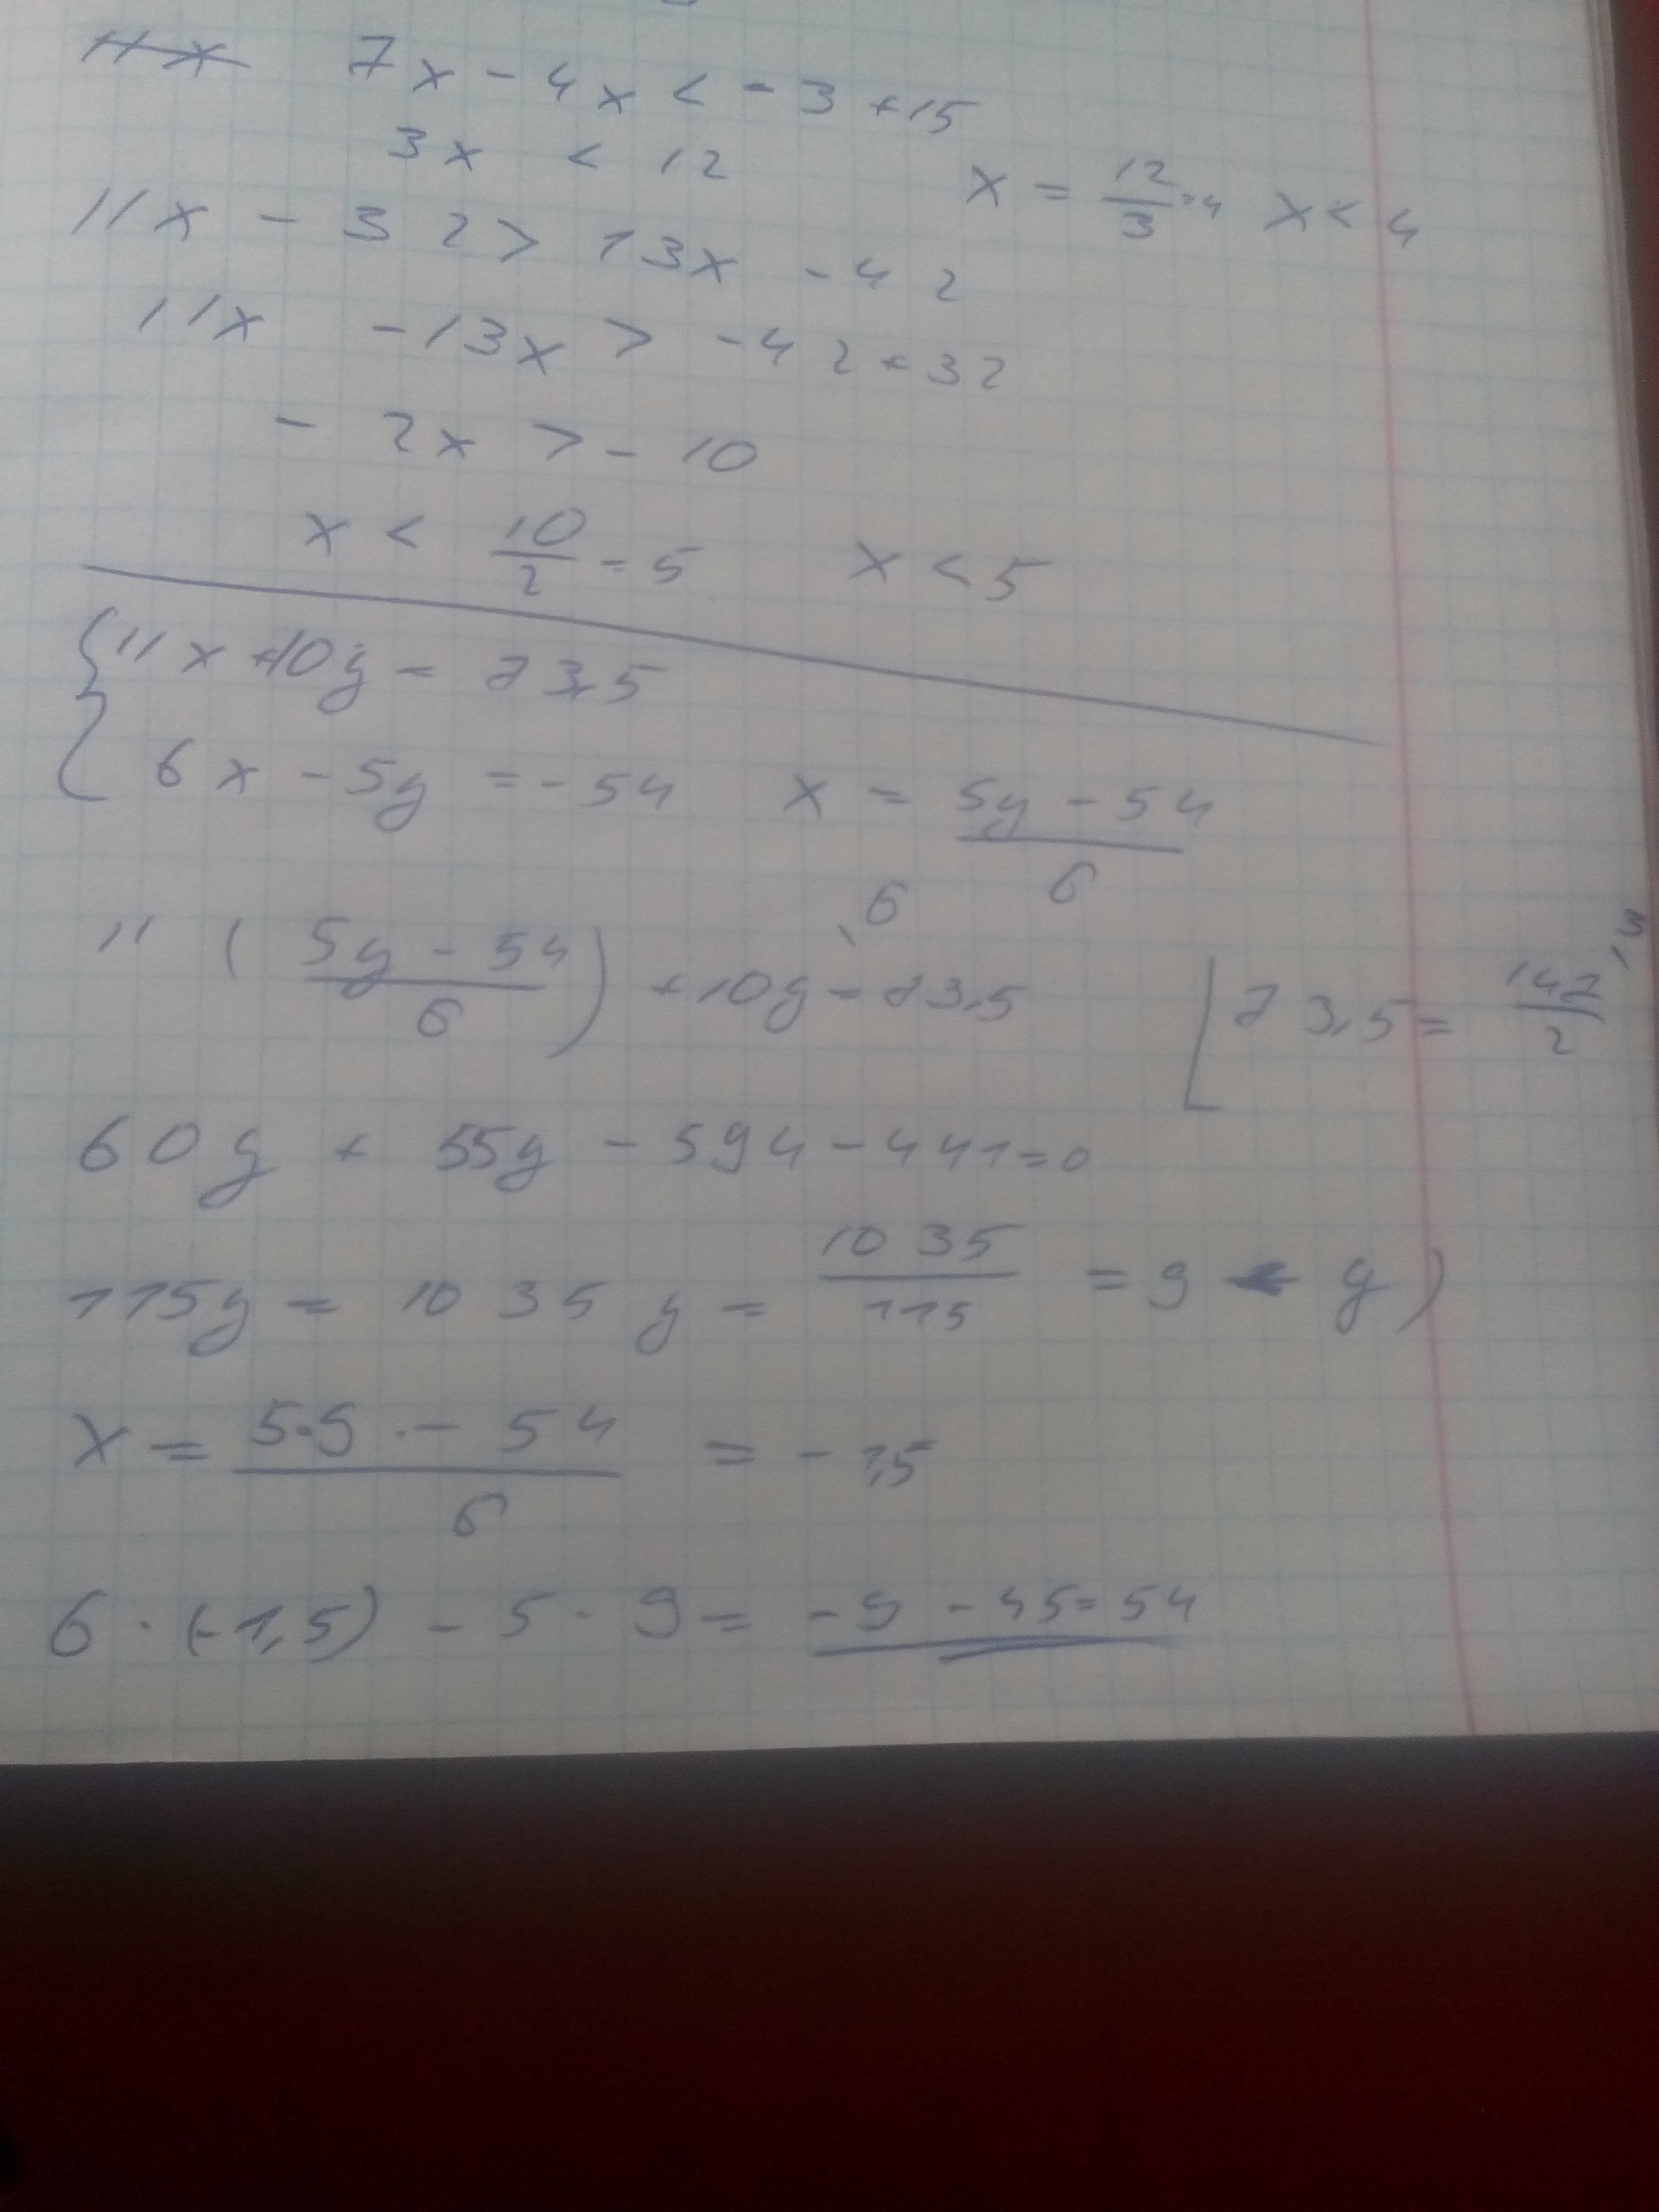 11x 7x - 4x < - 3 + 15
3x < 12 x = 12/3 = 4 x < 4
11x - 32 > 13x - 42
11x - 13x > - 42 + 32
- 2x > - 10
x < 10/2 = 5 x < 5
{ 11x + 10y = 73,5
6x - 5y = - 54 x = (5y - 54)/6
11 ( (5y - 54)/6 ) + 10y = 73,5 \6 [ 73,5 = 147/2 \3
60y + 55y - 594 - 441 = 0
115y = 1035 y = 1035/115 = 9 y )
x = (5·9 · - 54)/6 = - 1,5
6 · (-1,5) - 5 · 9 = - 9 - 45 = 54